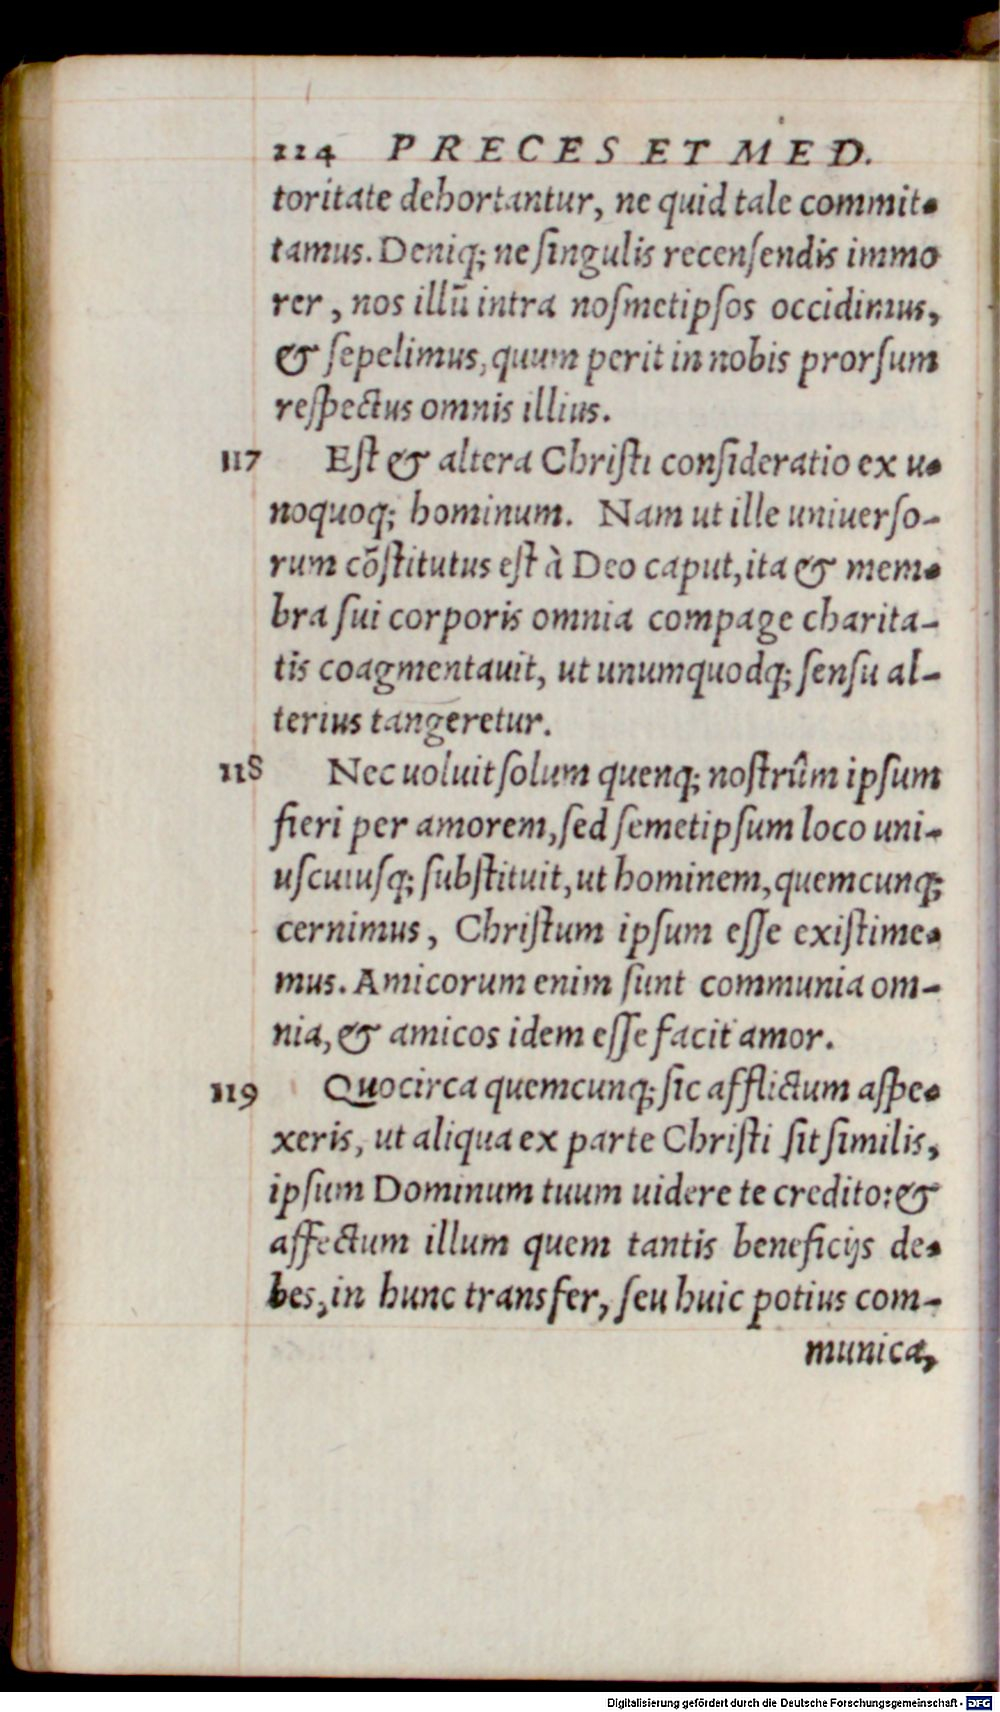 224 PRECES ET MED.
toritate dehortantur, ne quid tale commit-
tamus. Deniq; ne ſingulis recenſendis immo
rer, nos illū intra noſmetipſos occidimus,
& ſepelimus, quum perit in nobis prorſum
reſpectus omnis illius.
117 Eſt & altera Chriſti conſideratio ex u-
noquoq; hominum. Nam ut ille uniuerſo-
rum cōſtitutus eſt à Deo caput, ita & mem-
bra ſui corporis omnia compage charita-
tis coagmentauit, ut unumquodq; ſenſu al-
terius tangeretur.
118 Nec uoluit ſolum quenq; noſtrûm ipſum
fieri per amorem, ſed ſemetipſum loco uni-
uſcuiuſq; ſubſtituit, ut hominem, quemcunq;
cernimus, Chriſtum ipſum eſſe exiſtime-
mus. Amicorum enim ſunt communia om-
nia, & amicos idem eſſe facit amor.
119 Quocirca quemcunq; ſic afflictum aſpe-
xeris, ut aliqua ex parte Chriſti ſit ſimilis,
ipſum Dominum tuum uidere te credito: &
affectum illum quem tantis beneficijs de-
bes, in hunc transfer, ſeu huic potius com-
munica,
Digitalisierung gefördert durch die Deutsche Forschungsgemeinschaft - DFG